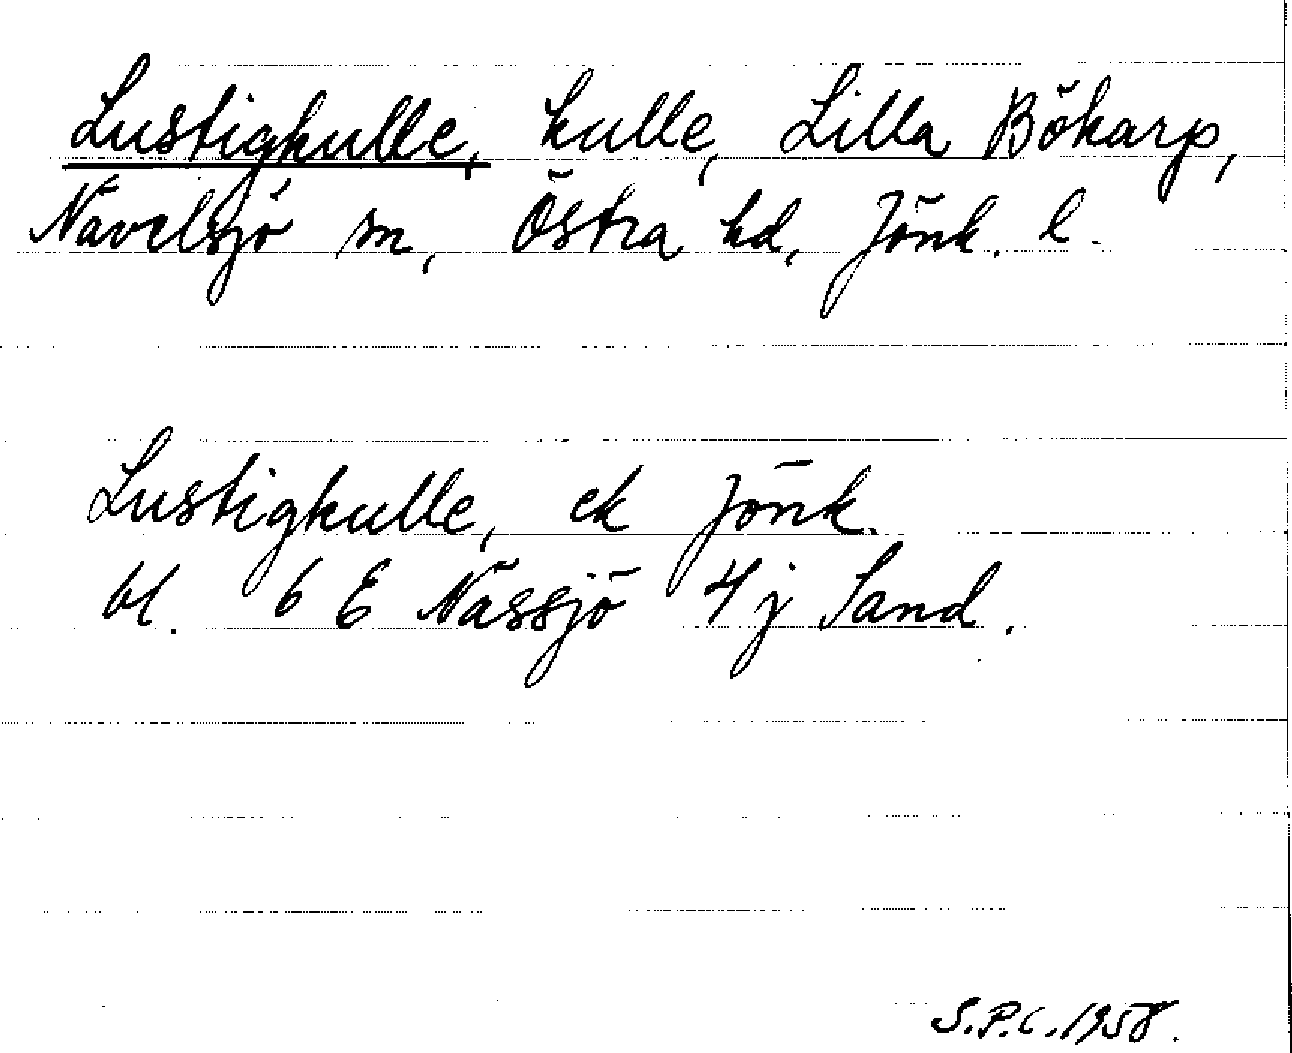 Lustigkulle, kulle, Lilla Bökarp,
Nävelsjö sn, Östra hd, Jönk. l.
Lustigkulle, ek Jönk.
bl. 6 E Nässjö 4 j Sand.
S.P.C. 1958.